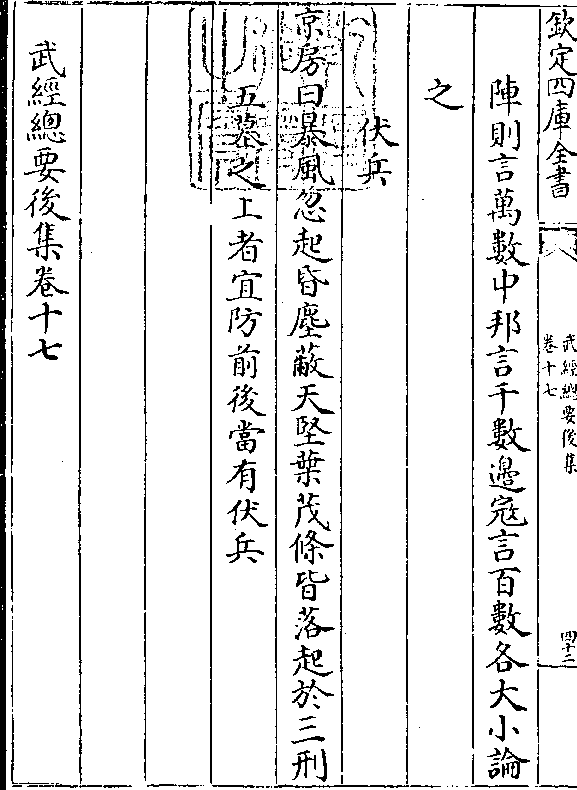 欽定四庫全書
武經總要後集
卷十七
四十二
陣則言萬數中邦言千數邊宼言百數各大小論
之
伏兵
京房曰暴風忽起昏塵蔽天堅葉茂條皆落起於三刑
五墓之上者宜防前後當有伏兵
武經總要後集卷十七